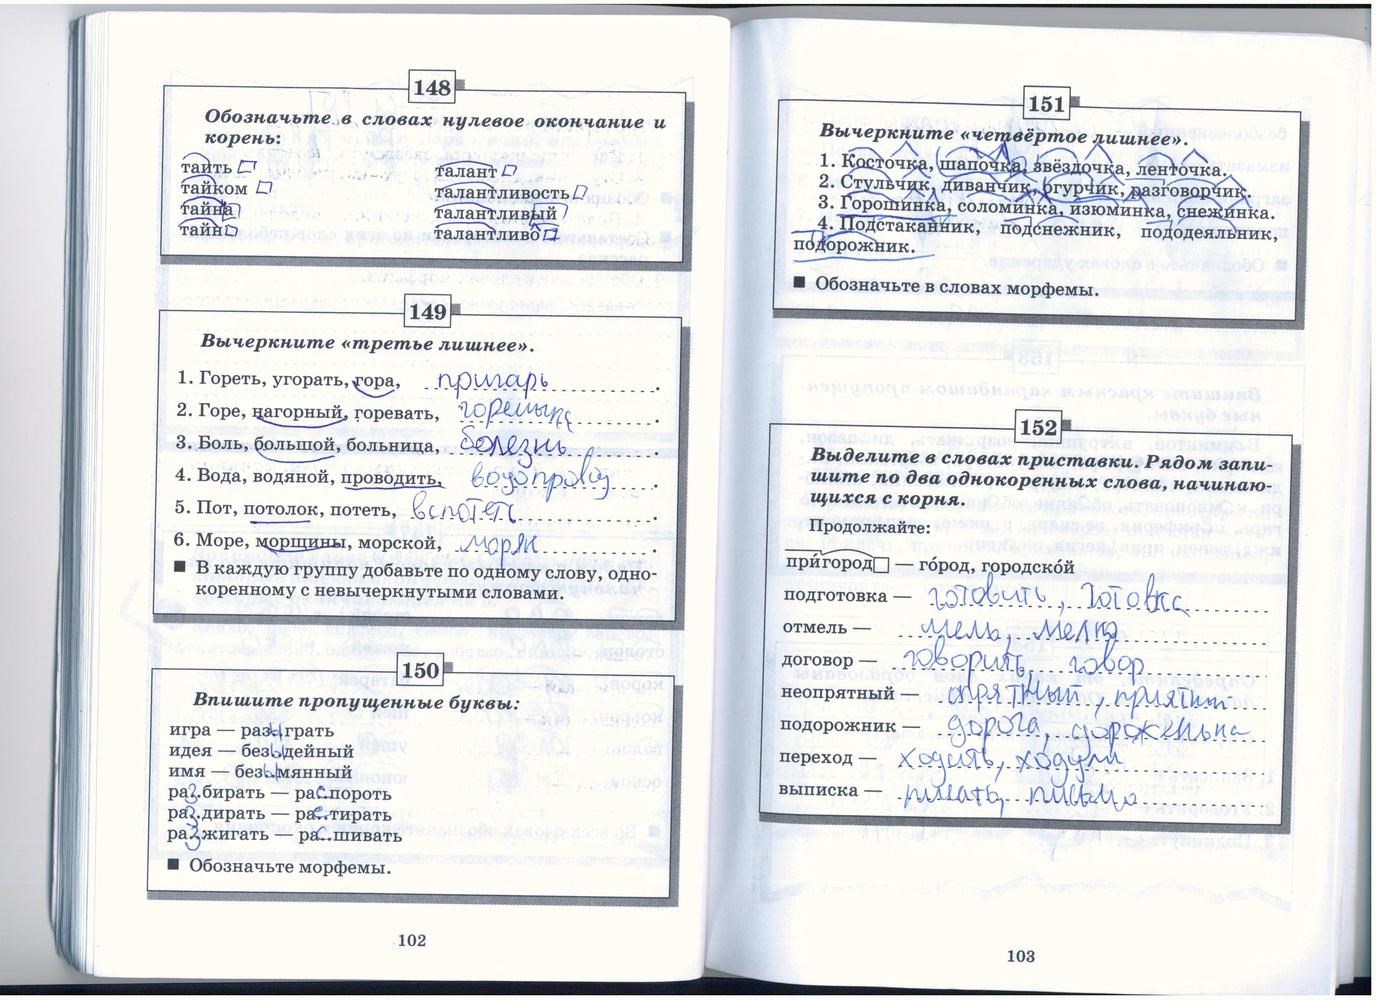 148
Обозначьте в словах нулевое окончание и
корень:
таить
тайком
тайна
тайн
талант
талантливость
талантливый
талантливо
149
Вычеркните «третье лишнее».
1. Гореть, угорать, гора, пригарь.
2. Горе, нагорный, горевать, горемыка.
3. Боль, большой, больница, болезнь.
4. Вода, водяной, проводить, водопровод.
5. Пот, потолок, потеть, вспотеть.
6. Море, морщины, морской, моряк.
■ В каждую группу добавьте по одному слову, одно-
коренному с невычеркнутыми словами.
150
Впишите пропущенные буквы:
игра — разыграть
идея — безыдейный
имя — безымянный
раз.бирать — рас.пороть
раз.дирать — рас.тирать
раз.жигать — рас.шивать
■ Обозначьте морфемы.
102
151
Вычеркните «четвёртое лишнее».
1. Косточка, шапочка, звёздочка, ленточка.
2. Стульчик, диванчик, огурчик, разговорчик.
3. Горошинка, соломинка, изюминка, снежинка.
4. Подстаканник, подснежник, пододеяльник,
подорожник.
■ Обозначьте в словах морфемы.
152
Выделите в словах приставки. Рядом запи-
шите по два однокоренных слова, начинаю-
щихся с корня.
Продолжайте:
при́город — го́род, городско́й
подготовка — готовить, готовка
отмель — мель, мелко
договор — говорить, говор
неопрятный — опрятный,
подорожник — дорога, дороженька
переход — ходить, ходули
выписка — писать, письмо
103